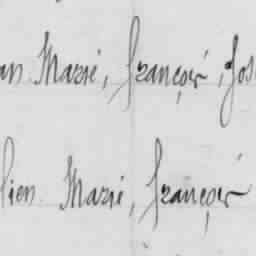 an Marie, François, Jos
lien Marie, François